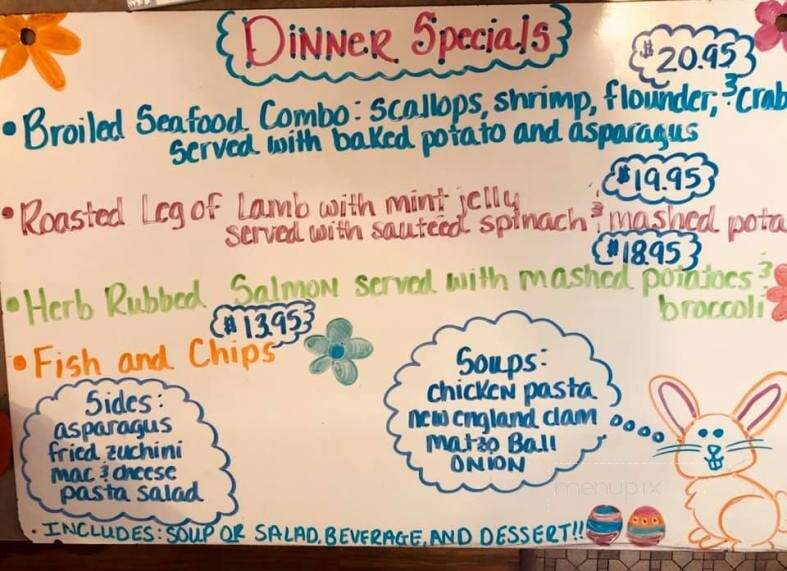 Dinner Specials
$20.95
• Broiled Seafood Combo: scallops, shrimp, flounder, & crab
served with baked potato and asparagus
$19.95
• Roasted Leg of Lamb with mint jelly
served with sauteed spinach & mashed pota
$18.95
• Herb Rubbed Salmon served with mashed potatoes &
broccoli
$13.95
• Fish and Chips
Sides:
asparagus
fried zuchini
mac & cheese
pasta salad
Soups:
chicken pasta
new england clam
matzo Ball
ONION
• INCLUDES: SOUP OR SALAD, BEVERAGE, AND DESSERT!!
menupix